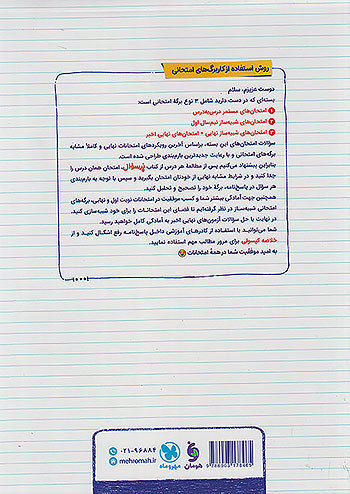 روش استفاده از کاربرگ‌های امتحانی
دوست عزیزم، سلام
بسته‌ای که در دست دارید شامل ۳ نوع برگهٔ امتحانی است:
۱ امتحان‌های مستمر درس‌به‌درس
۲ امتحان‌های شبه‌ساز نیم‌سال اول
۳ امتحان‌های شبه‌ساز نهایی + امتحان‌های نهایی اخیر
سؤالات امتحان‌های این بسته، براساس آخرین رویکردهای امتحانات نهایی و کاملاً مشابه
برگه‌های امتحانی و با رعایت جدیدترین بارم‌بندی طراحی شده است.
بنابراین پیشنهاد می‌کنیم پس از مطالعهٔ هر درس از کتاب پُرسؤال، امتحان همان درس را
جدا کنید و در شرایط مشابه نهایی از خودتان امتحان بگیرید و سپس با توجه به بارم‌بندی
هر سؤال در پاسخ‌نامه، برگهٔ خود را تصحیح و تحلیل کنید.
همچنین جهت آمادگی بیشتر شما و کسب موفقیت در امتحانات نوبت اول و نهایی، برگه‌های
امتحانی شبه‌ساز در نظر گرفته‌ایم تا فضای این امتحانات را برای خود شبیه‌سازی کنید.
در نهایت با حل سؤالات آزمون‌های نهایی اخیر به آمادگی کامل خواهید رسید.
شما می‌توانید با استفاده از کادرهای آموزشی داخل پاسخ‌نامه رفع اشکال کنید و از
خلاصه کپسولی برای مرور مطالب مهم استفاده نمایید.
به امید موفقیت شما در همهٔ امتحانات
۰۲۱-۹۶۸۸۴
mehromah.ir
مهروماه
هومان
9 786003 178465